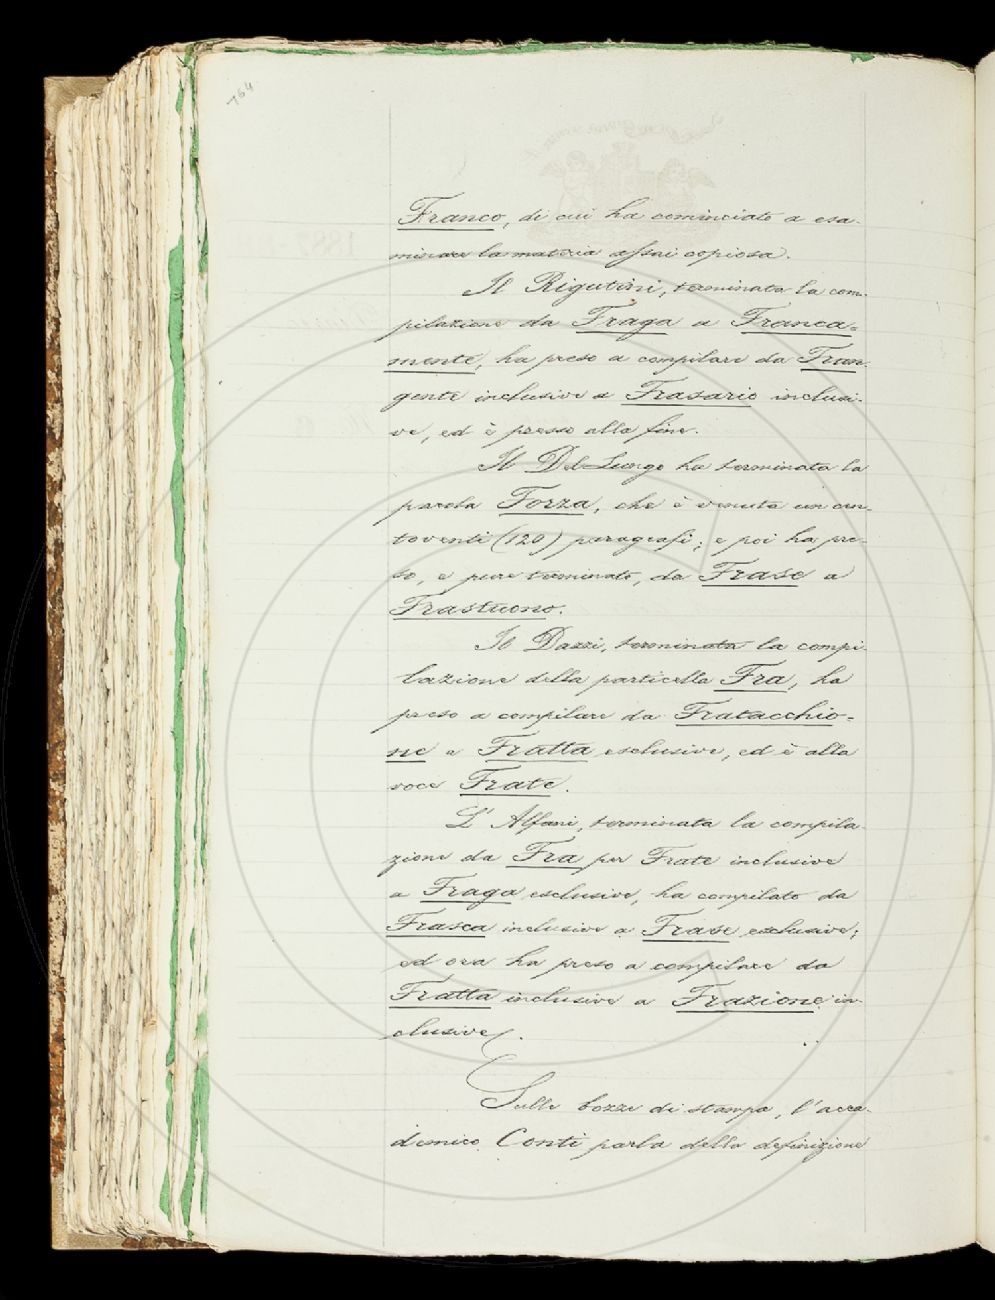 764
Franco, di cui ha cominciato a esa-
minare la materia assai copiosa.
Il Rigutini, terminata la com-
pilazione da Fraga a Franca-
mente, ha preso a compilare da Fran-
gente inclusive a Frasario inclusi-
ve, ed è presso alla fine.
Il Del Lungo ha terminata la
parola Forza, che è venuta un cen-
toventi (120) paragrafi; e poi ha pre-
so, e pure terminato, da Frase a
Frastuono.
Il Dazzi, terminata la compi-
lazione della particella Fra, ha
preso a compilare da Fratacchio-
ne a Fratta esclusive, ed è alla
voce Frate.
L'Alfani, terminata la compila-
zione da Fra per Frate inclusive
a Fraga esclusive, ha compilato da
Frasca inclusive a Frase esclusive;
ed ora ha preso a compilare da
Fratta inclusive a Frazione in-
clusive.
Sulle bozze di stampa, l'acca-
demico Conti parla della definizione